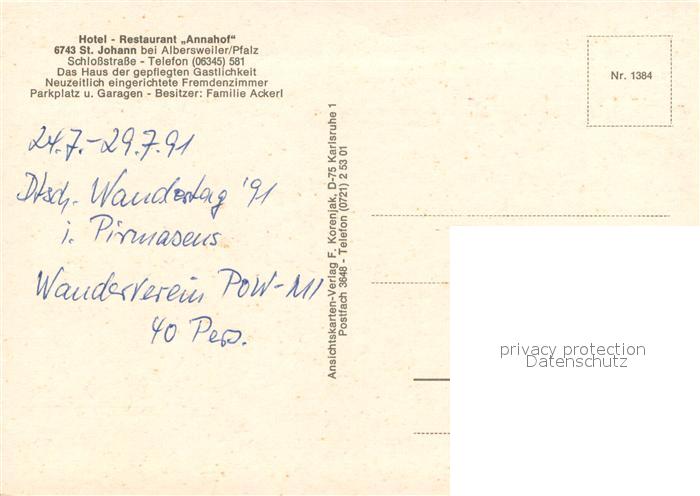 Hotel - Restaurant „Annahof"
6743 St. Johann bei Albersweiler/Pfalz
Schloßstraße - Telefon (06345) 581
Das Haus der gepflegten Gastlichkeit
Neuzeitlich eingerichtete Fremdenzimmer
Parkplatz u. Garagen - Besitzer: Familie Ackerl
24.7.-29.7.91
Dtsch. Wandertag '91
i. Pirmasens
Wanderverein POW-MI
40 Pers.
Ansichtskarten-Verlag F. Korenjak, D-75 Karlsruhe 1
Postfach 3648 - Telefon (0721) 2 53 01
Nr. 1384
privacy protection
Datenschutz